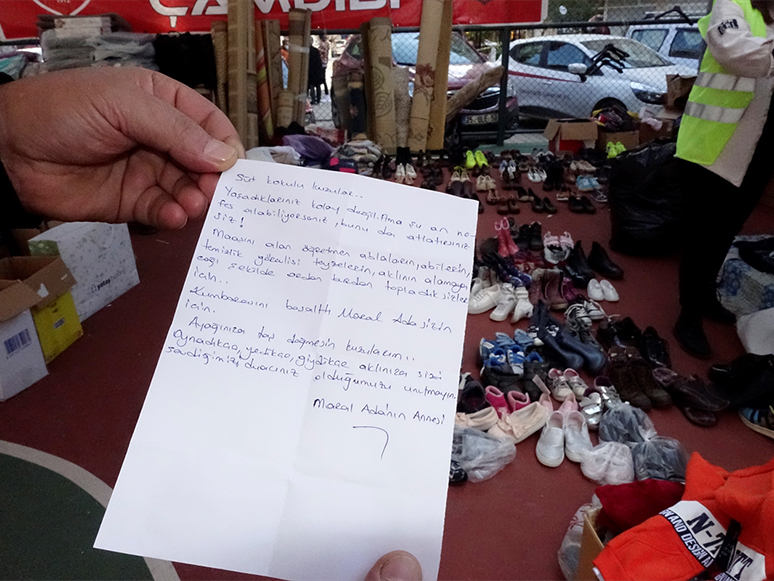 ÇAMDİBİ
Süt kokulu kuzular..
Yaşadıklarınız kolay değil. Ama şu an ne-
fes alabiliyorsanız, bunu da atlatırsınız
siz!
Maaşını alan öğretmen ablaların, abilerin,
temizlik görevlisi teyzelerin, aklının alamaya-
cağı şekilde ordan burdan topladık sizler
için..
Kumbarasını boşalttı Maral Ada sizin
için.
Ayağınıza taş değmesin kuzularım..
Oynadıkça, yedikçe, giydikçe aklınıza sizi
sevdiğimizi, duacınız olduğumuzu unutmayın.
Maral Ada'nın Annesi